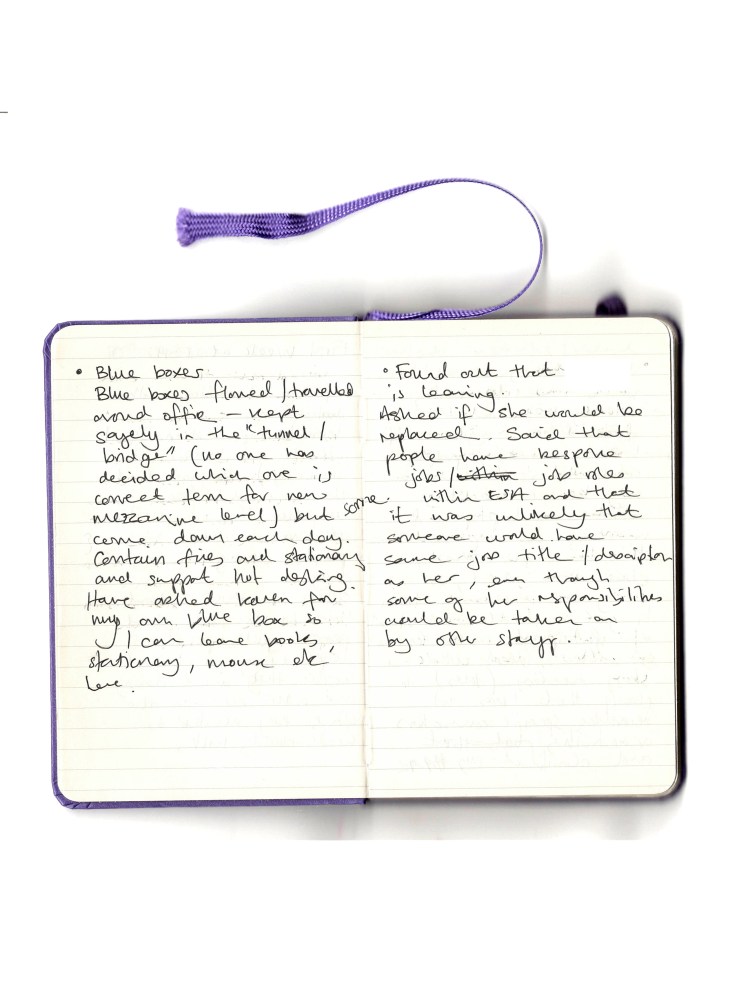 • Blue boxes
Blue boxes flowed / travelled
around office – kept
safely in the "tunnel /
bridge" (no one has
decided which one is
correct term for new
mezzanine level) but some
come down each day.
Contain files and stationary
and support hot desking.
Have asked Karen for
my own blue box so
I can leave books,
stationary, mouse etc
here.
• Found out that
is leaving.
Asked if she would be
replaced. Said that
people have bespoke
jobs / within job roles
within ESA and that
it was unlikely that
someone would have
same job title / description
as her, even though
some of her responsibilities
would be taken on
by other staff.